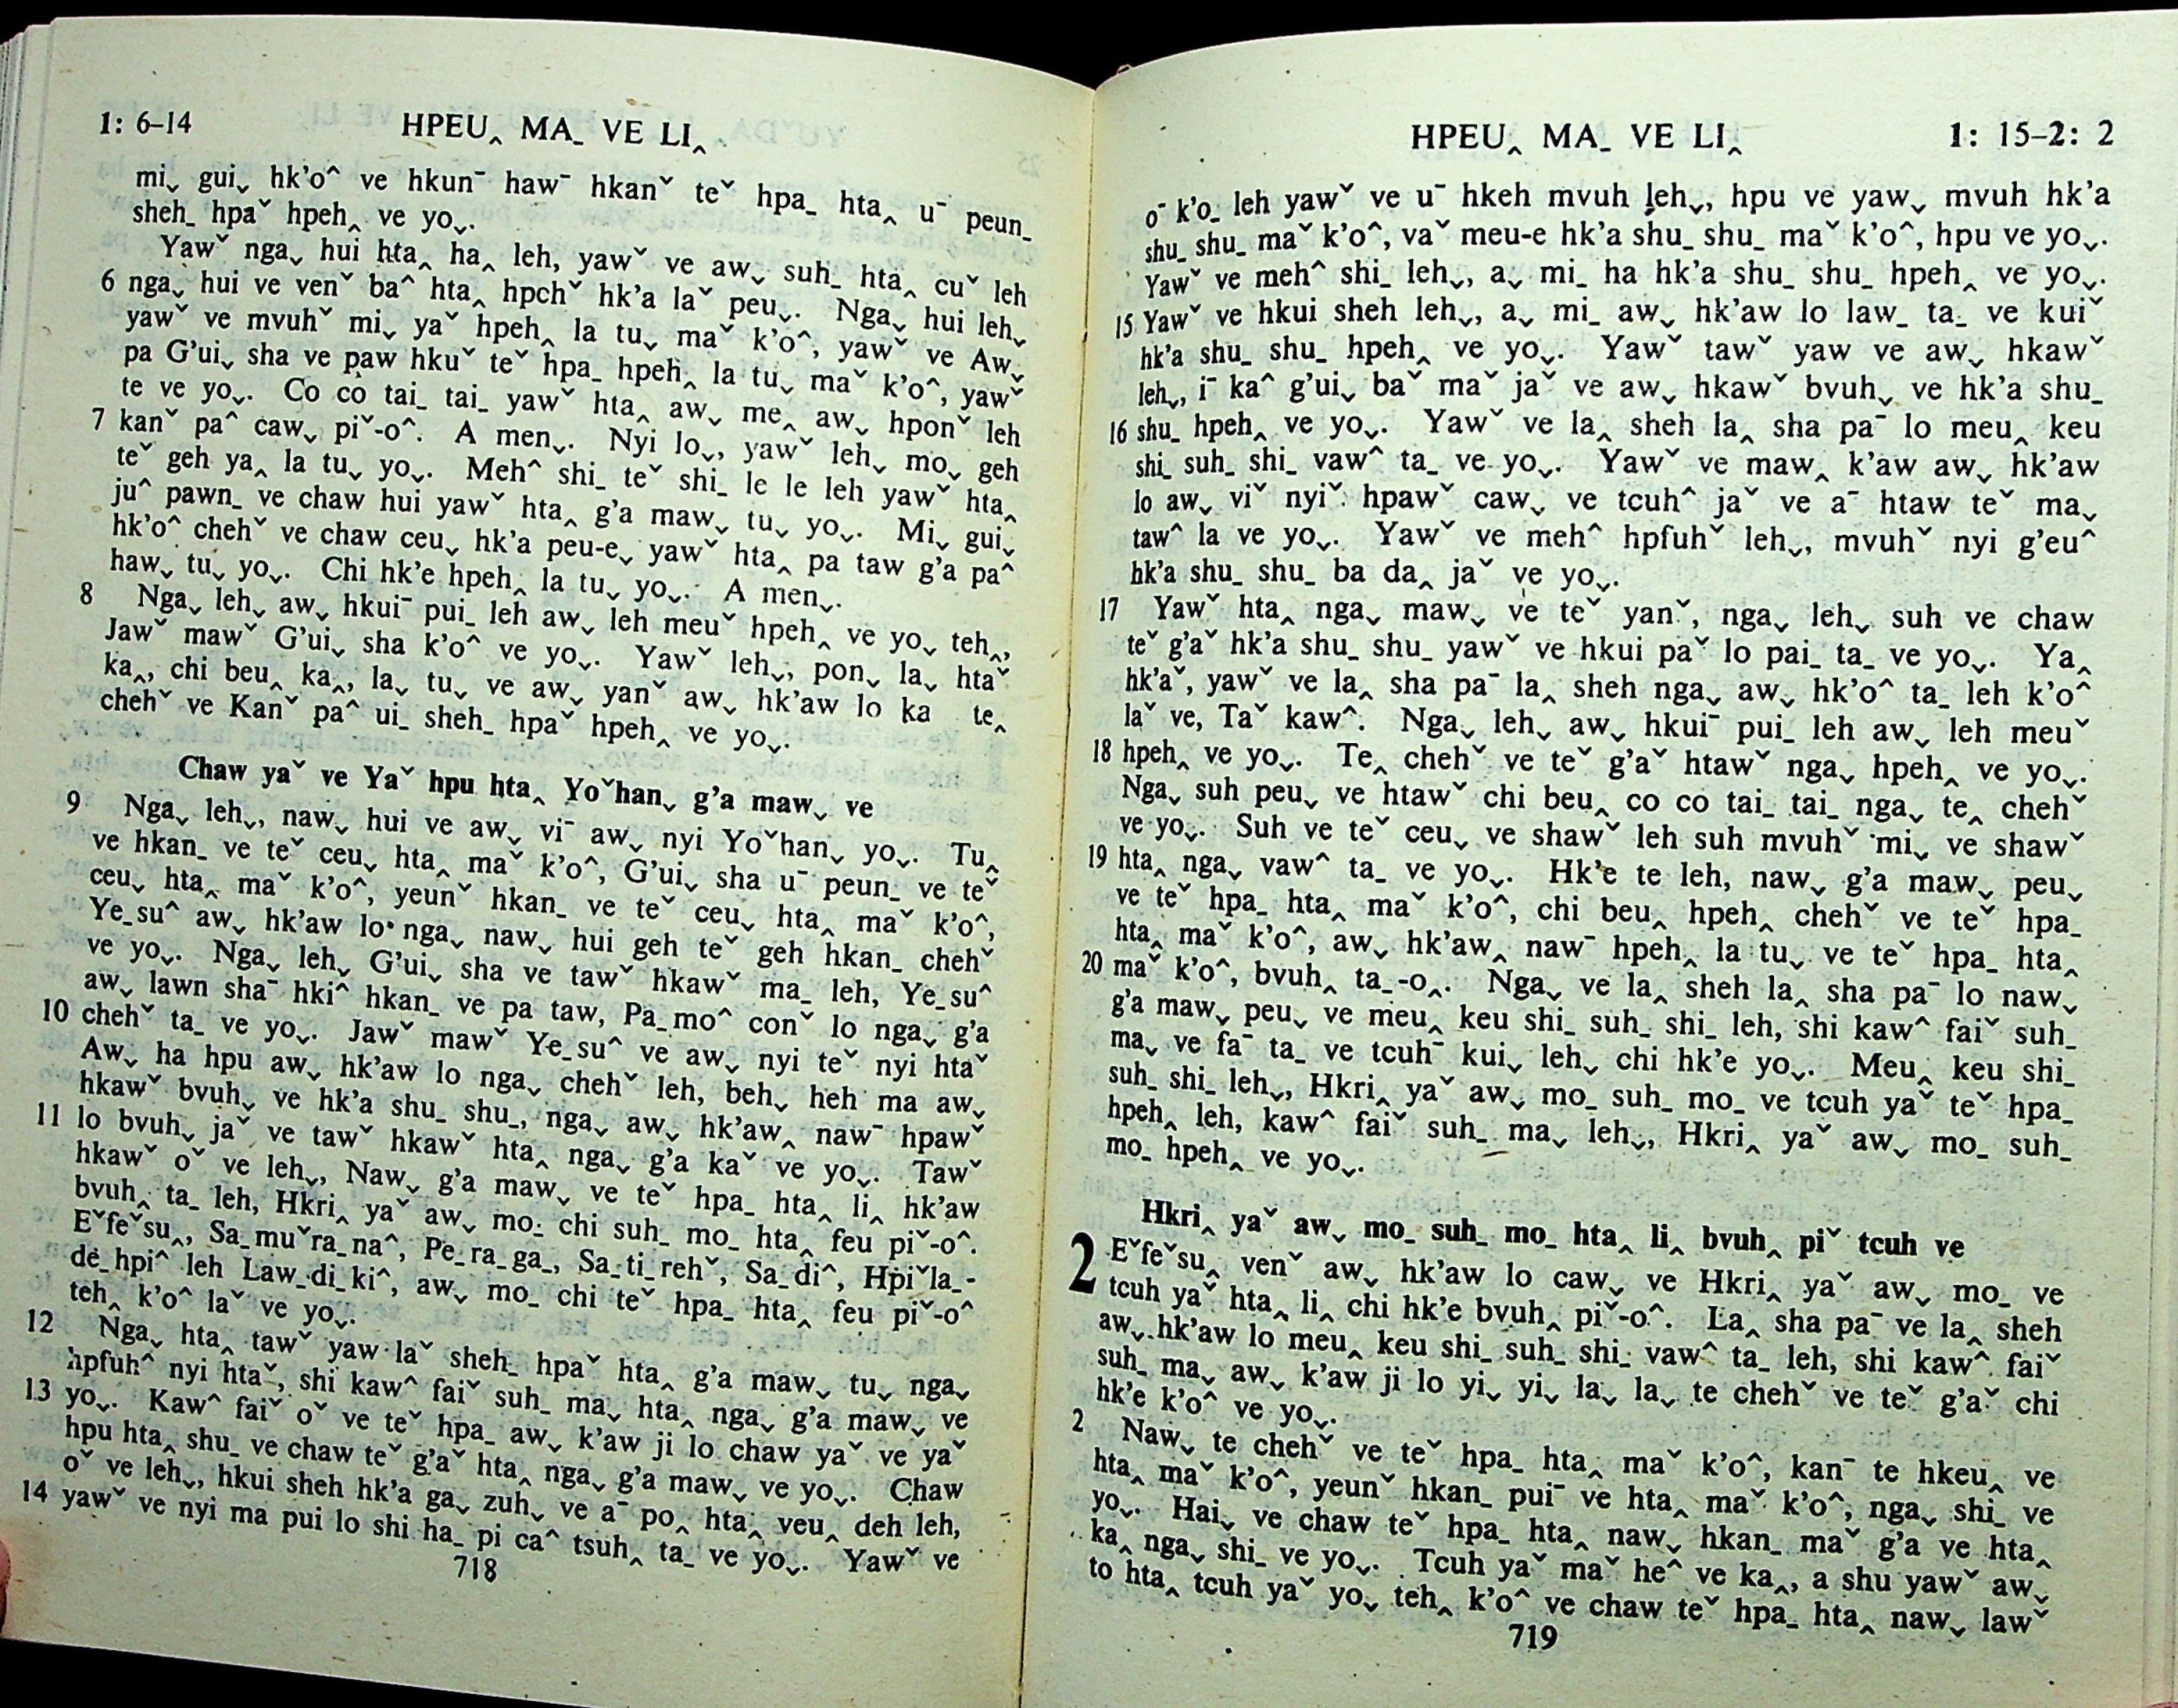 1: 6–14 HPEU‸ MA_ VE LI‸
mi⌄ gui⌄ hk'o^ ve hkun¯ haw¯ hkanˇ teˇ hpa_ hta‸ u¯ peun_
sheh_ hpaˇ hpeh‸ ve yo⌄.
Yawˇ nga⌄ hui hta‸ ha‸ leh, yawˇ ve aw⌄ suh_ hta‸ cuˇ leh
6 nga⌄ hui ve venˇ ba^ hta‸ hpehˇ hk'a laˇ peu⌄. Nga⌄ hui leh⌄
yawˇ ve mvuhˇ mi⌄ yaˇ hpeh‸ la tu⌄ maˇ k'o^, yawˇ ve Aw⌄
pa G'ui⌄ sha ve paw hkuˇ teˇ hpa_ hpeh‸ la tu⌄ maˇ k'o^, yawˇ
te ve yo⌄. Co co tai_ tai_ yawˇ hta‸ aw⌄ me‸ aw⌄ hponˇ leh
7 kanˇ pa^ caw⌄ piˇ-o^. A men⌄. Nyi lo⌄, yawˇ leh⌄ mo⌄ geh
teˇ geh ya‸ la tu⌄ yo⌄. Meh^ shi_ teˇ shi_ le le leh yawˇ hta‸
ju^ pawn_ ve chaw hui yawˇ hta‸ g'a maw⌄ tu⌄ yo⌄. Mi⌄ gui⌄
hk'o^ chehˇ ve chaw ceu⌄ hk'a peu-e⌄ yawˇ hta‸ pa taw g'a pa^
haw⌄ tu⌄ yo⌄. Chi hk'e hpeh‸ la tu⌄ yo⌄. A men⌄.
8 Nga⌄ leh⌄ aw⌄ hkui¯ pui_ leh aw⌄ leh meuˇ hpeh‸ ve yo⌄ teh‸,
Jawˇ mawˇ G'ui⌄ sha k'o^ ve yo⌄. Yawˇ leh⌄, pon⌄ la⌄ htaˇ
ka‸, chi beu‸ ka‸, la⌄ tu⌄ ve aw⌄ yanˇ aw⌄ hk'aw lo ka te‸
chehˇ ve Kanˇ pa^ ui_ sheh_ hpaˇ hpeh‸ ve yo⌄.
Chaw yaˇ ve Yaˇ hpu hta‸ Yoˇhan⌄ g'a maw⌄ ve
9 Nga⌄ leh⌄, naw⌄ hui ve aw⌄ vi¯ aw⌄ nyi Yoˇhan⌄ yo⌄. Tu‸
ve hkan_ ve teˇ ceu⌄ hta‸ maˇ k'o^, G'ui⌄ sha u¯ peun_ ve teˇ
ceu⌄ hta‸ maˇ k'o^, yeunˇ hkan_ ve teˇ ceu⌄ hta‸ maˇ k'o^,
Ye_su^ aw⌄ hk'aw lo nga⌄ naw⌄ hui geh teˇ geh hkan_ chehˇ
ve yo⌄. Nga⌄ leh⌄ G'ui⌄ sha ve tawˇ hkawˇ ma_ leh, Ye_su^
aw⌄ lawn sha¯ hki^ hkan_ ve pa taw, Pa_mo^ conˇ lo nga⌄ g'a
10 chehˇ ta_ ve yo⌄. Jawˇ mawˇ Ye_su^ ve aw⌄ nyi teˇ nyi htaˇ
Aw⌄ ha hpu aw⌄ hk'aw lo nga⌄ chehˇ leh, beh⌄ heh ma aw⌄
hkawˇ bvuh⌄ ve hk'a shu_ shu_, nga⌄ aw⌄ hk'aw‸ naw¯ hpawˇ
11 lo bvuh⌄ jaˇ ve tawˇ hkawˇ hta‸ nga⌄ g'a kaˇ ve yo⌄. Tawˇ
hkawˇ oˇ ve leh⌄, Naw⌄ g'a maw⌄ ve teˇ hpa_ hta‸ li‸ hk'aw
bvuh‸ ta_ leh, Hkri‸ yaˇ aw⌄ mo_ chi suh_ mo_ hta‸ feu piˇ-o^.
Eˇfeˇsu‸, Sa_muˇra_na^, Pe_ra_ga_, Sa_ti_rehˇ, Sa_di^, Hpiˇla_-
de_hpi^ leh Law_di_ki^, aw⌄ mo_ chi teˇ hpa_ hta‸ feu piˇ-o^
teh‸ k'o^ laˇ ve yo⌄.
12 Nga⌄ hta‸ tawˇ yaw laˇ sheh_ hpaˇ hta‸ g'a maw⌄ tu⌄ nga⌄
hpfuh^ nyi htaˇ, shi kaw^ faiˇ suh_ ma⌄ hta‸ nga⌄ g'a maw⌄ ve
13 yo⌄. Kaw^ faiˇ oˇ ve teˇ hpa_ aw⌄ k'aw ji lo chaw yaˇ ve yaˇ
hpu hta‸ shu_ ve chaw teˇ g'aˇ hta‸ nga⌄ g'a maw⌄ ve yo⌄. Chaw
oˇ ve leh⌄, hkui sheh hk'a ga⌄ zuh⌄ ve a¯ po‸ hta‸ veu‸ deh leh,
14 yawˇ ve nyi ma pui lo shi ha_ pi ca^ tsuh‸ ta_ ve yo⌄. Yawˇ ve
718
HPEU‸ MA_ VE LI‸ 1: 15–2: 2
o¯ k'o_ leh yawˇ ve u¯ hkeh mvuh leh⌄, hpu ve yaw⌄ mvuh hk'a
shu_ shu_ maˇ k'o^, vaˇ meu-e hk'a shu_ shu_ maˇ k'o^, hpu ve yo⌄.
Yawˇ ve meh^ shi_ leh⌄, a⌄ mi_ ha hk'a shu_ shu_ hpeh‸ ve yo⌄.
15 Yawˇ ve hkui sheh leh⌄, a⌄ mi_ aw⌄ hk'aw lo law_ ta_ ve kuiˇ
hk'a shu_ shu_ hpeh‸ ve yo⌄. Yawˇ tawˇ yaw ve aw⌄ hkawˇ
leh⌄, i¯ ka^ g'ui⌄ baˇ maˇ jaˇ ve aw⌄ hkawˇ bvuh⌄ ve hk'a shu_
16 shu_ hpeh‸ ve yo⌄. Yawˇ ve la‸ sheh la‸ sha pa¯ lo meu‸ keu
shi_ suh_ shi_ vaw^ ta_ ve yo⌄. Yawˇ ve maw‸ k'aw aw⌄ hk'aw
lo aw⌄ viˇ nyiˇ hpawˇ caw⌄ ve tcuh^ jaˇ ve a¯ htaw teˇ ma⌄
taw^ la ve yo⌄. Yawˇ ve meh^ hpfuhˇ leh⌄, mvuhˇ nyi g'eu^
hk'a shu_ shu_ ba da‸ jaˇ ve yo⌄.
17 Yawˇ hta‸ nga⌄ maw⌄ ve teˇ yanˇ, nga⌄ leh⌄ suh ve chaw
teˇ g'aˇ hk'a shu_ shu_ yawˇ ve hkui paˇ lo pai_ ta_ ve yo⌄. Ya‸
hk'aˇ, yawˇ ve la‸ sha pa¯ la‸ sheh nga⌄ aw⌄ hk'o^ ta_ leh k'o^
laˇ ve, Taˇ kaw^. Nga⌄ leh⌄ aw⌄ hkui¯ pui_ leh aw⌄ leh meuˇ
18 hpeh‸ ve yo⌄. Te‸ chehˇ ve teˇ g'aˇ htawˇ nga⌄ hpeh‸ ve yo⌄.
Nga⌄ suh peu⌄ ve htawˇ chi beu‸ co co tai_ tai_ nga⌄ te‸ chehˇ
ve yo⌄. Suh ve teˇ ceu⌄ ve shawˇ leh suh mvuhˇ mi⌄ ve shawˇ
19 hta‸ nga⌄ vaw^ ta_ ve yo⌄. Hk'e te leh, naw⌄ g'a maw⌄ peu⌄
ve teˇ hpa_ hta‸ maˇ k'o^, chi beu‸ hpeh‸ chehˇ ve teˇ hpa_
hta‸ maˇ k'o^, aw⌄ hk'aw‸ naw¯ hpeh‸ la tu⌄ ve teˇ hpa_ hta‸
20 maˇ k'o^, bvuh‸ ta_-o‸. Nga⌄ ve la‸ sheh la‸ sha pa¯ lo naw⌄
g'a maw⌄ peu⌄ ve meu‸ keu shi_ suh_ shi_ leh, shi kaw^ faiˇ suh_
ma⌄ ve fa¯ ta_ ve tcuh¯ kui⌄ leh⌄ chi hk'e yo⌄. Meu‸ keu shi_
suh_ shi_ leh⌄, Hkri‸ yaˇ aw⌄ mo_ suh_ mo_ ve tcuh yaˇ teˇ hpa_
hpeh‸ leh, kaw^ faiˇ suh_ ma⌄ leh⌄, Hkri‸ yaˇ aw⌄ mo_ suh_
mo_ hpeh‸ ve yo⌄.
Hkri‸ yaˇ aw⌄ mo_ suh_ mo_ hta‸ li‸ bvuh‸ piˇ tcuh ve
2 Eˇfeˇsu‸ venˇ aw⌄ hk'aw lo caw⌄ ve Hkri‸ yaˇ aw⌄ mo_ ve
tcuh yaˇ hta‸ li‸ chi hk'e bvuh‸ piˇ-o^. La‸ sha pa¯ ve la‸ sheh
aw⌄ hk'aw lo meu‸ keu shi_ suh_ shi_ vaw^ ta_ leh, shi kaw^ faiˇ
suh_ ma⌄ aw⌄ k'aw ji lo yi⌄ yi⌄ la⌄ la⌄ te chehˇ ve teˇ g'aˇ chi
hk'e k'o^ ve yo⌄.
2 Naw⌄ te chehˇ ve teˇ hpa_ hta‸ maˇ k'o^, kan¯ te hkeu‸ ve
hta‸ maˇ k'o^, yeunˇ hkan_ pui¯ ve hta‸ maˇ k'o^, nga⌄ shi_ ve
yo⌄. Hai⌄ ve chaw teˇ hpa_ hta‸ naw⌄ hkan_ maˇ g'a ve hta‸
ka‸ nga⌄ shi_ ve yo⌄. Tcuh yaˇ maˇ he^ ve ka‸, a shu yawˇ aw⌄
to hta‸ tcuh yaˇ yo⌄ teh‸ k'o^ ve chaw teˇ hpa_ hta‸ naw⌄ lawˇ
719